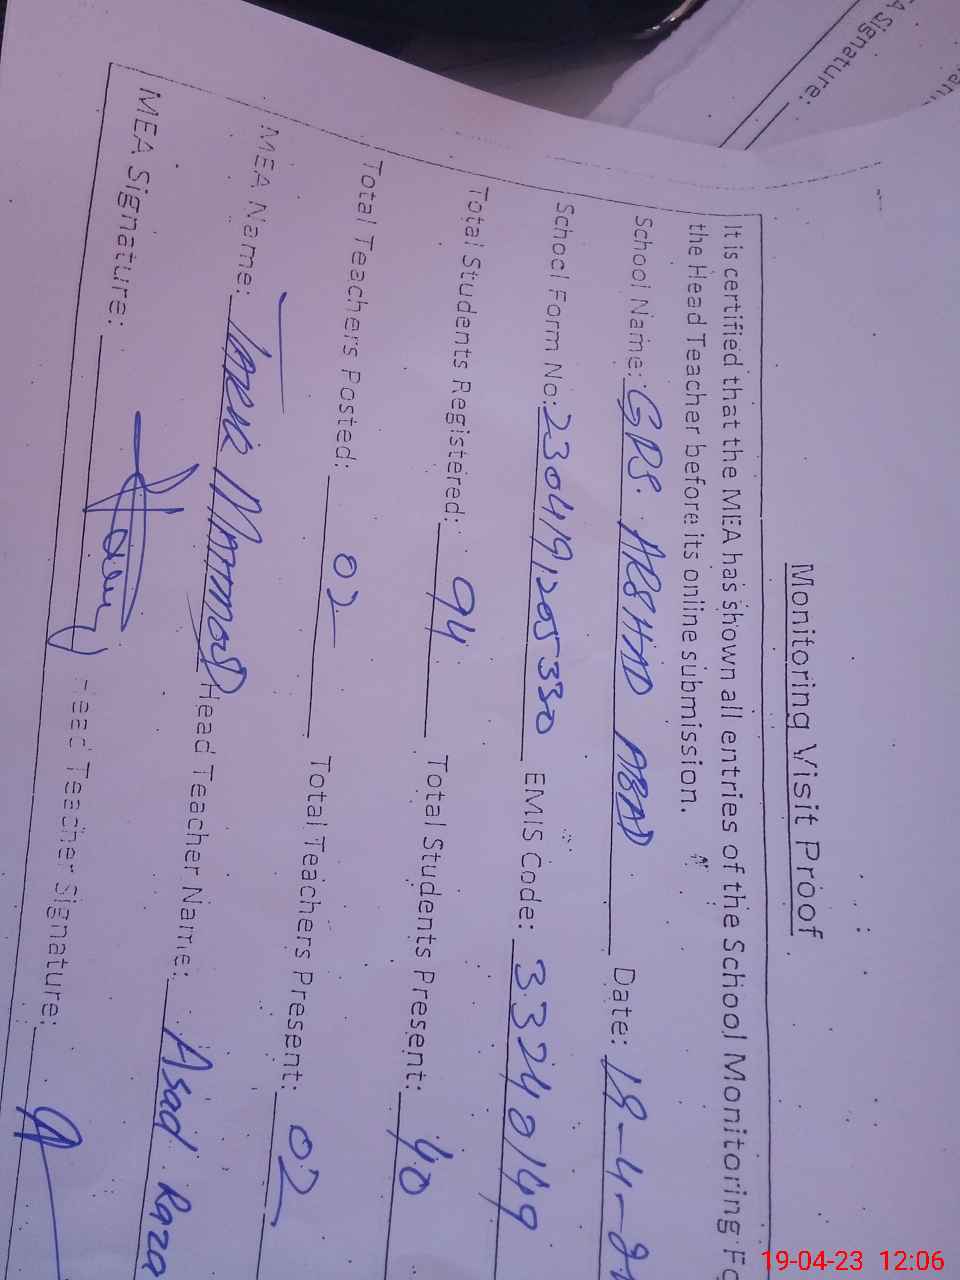 Monitoring Visit Proof
It is certified that the MEA has shown all entries of the School Monitoring Fo
the Head Teacher before its online submission.
School Name: GPS. ARSHAD ABAD Date: 19-4-2
School Form No: 230419,205330 EMIS Code: 33240149
Total Students Registered: 94 Total Students Present: 40
Total Teachers Posted: 02 Total Teachers Present: 02
MEA Name: Head Teacher Name: Asad Raza
MEA Signature: Head Teacher Signature:
A Signature:
19-04-23 12:06